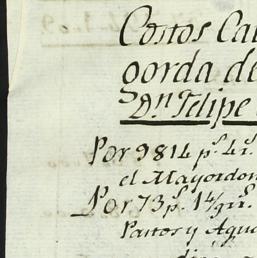 Costos Cau
gorda de
Dn Felipe
Por 9814 ps. 4rs.
el Mayordom
Por 73 ps. 1
Partos y Agua